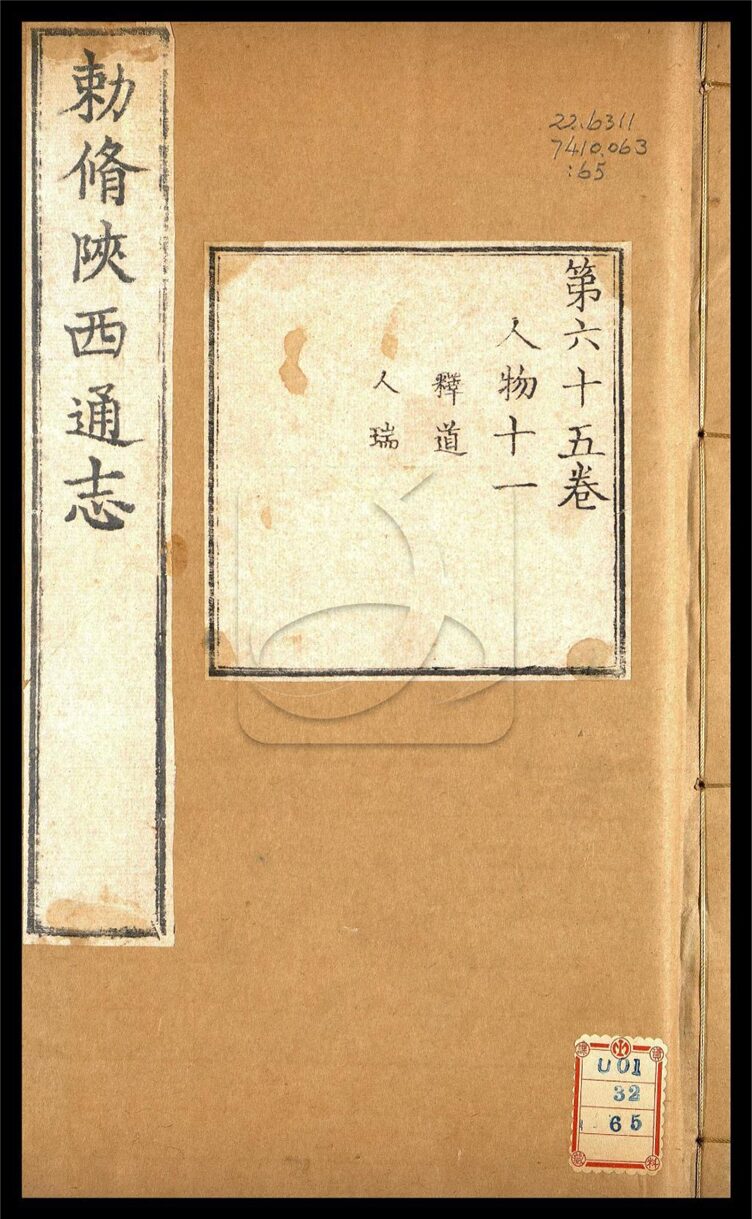 勅脩陝西通志
第六十五卷
人物十一
釋道
人瑞
22.6311
7410.063
:65
U01
32
65